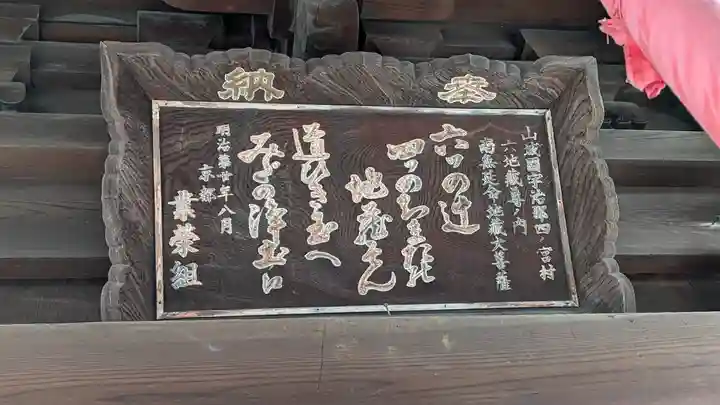 奉納
山城國宇治郡四ノ宮村
六地蔵尊ノ内
延命地蔵大菩薩
六つの辻
四つのちまた
地蔵そん
道びき玉へ
みだの浄土に
明治廿年八月
京都
業榮組